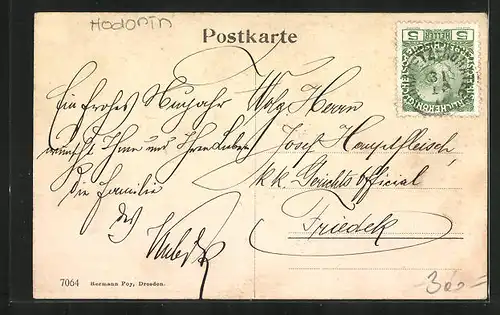 Hodonín
Postkarte
Ein frohes Neujahr
wünscht Ihnen und Ihren Lieben
die Familie
des
Wolg. Herrn
Josef Hampelfleisch
k.k. Gerichts official
Friedek
5 HELLER 5
7064 Hermann Poy, Dresden.
300.=